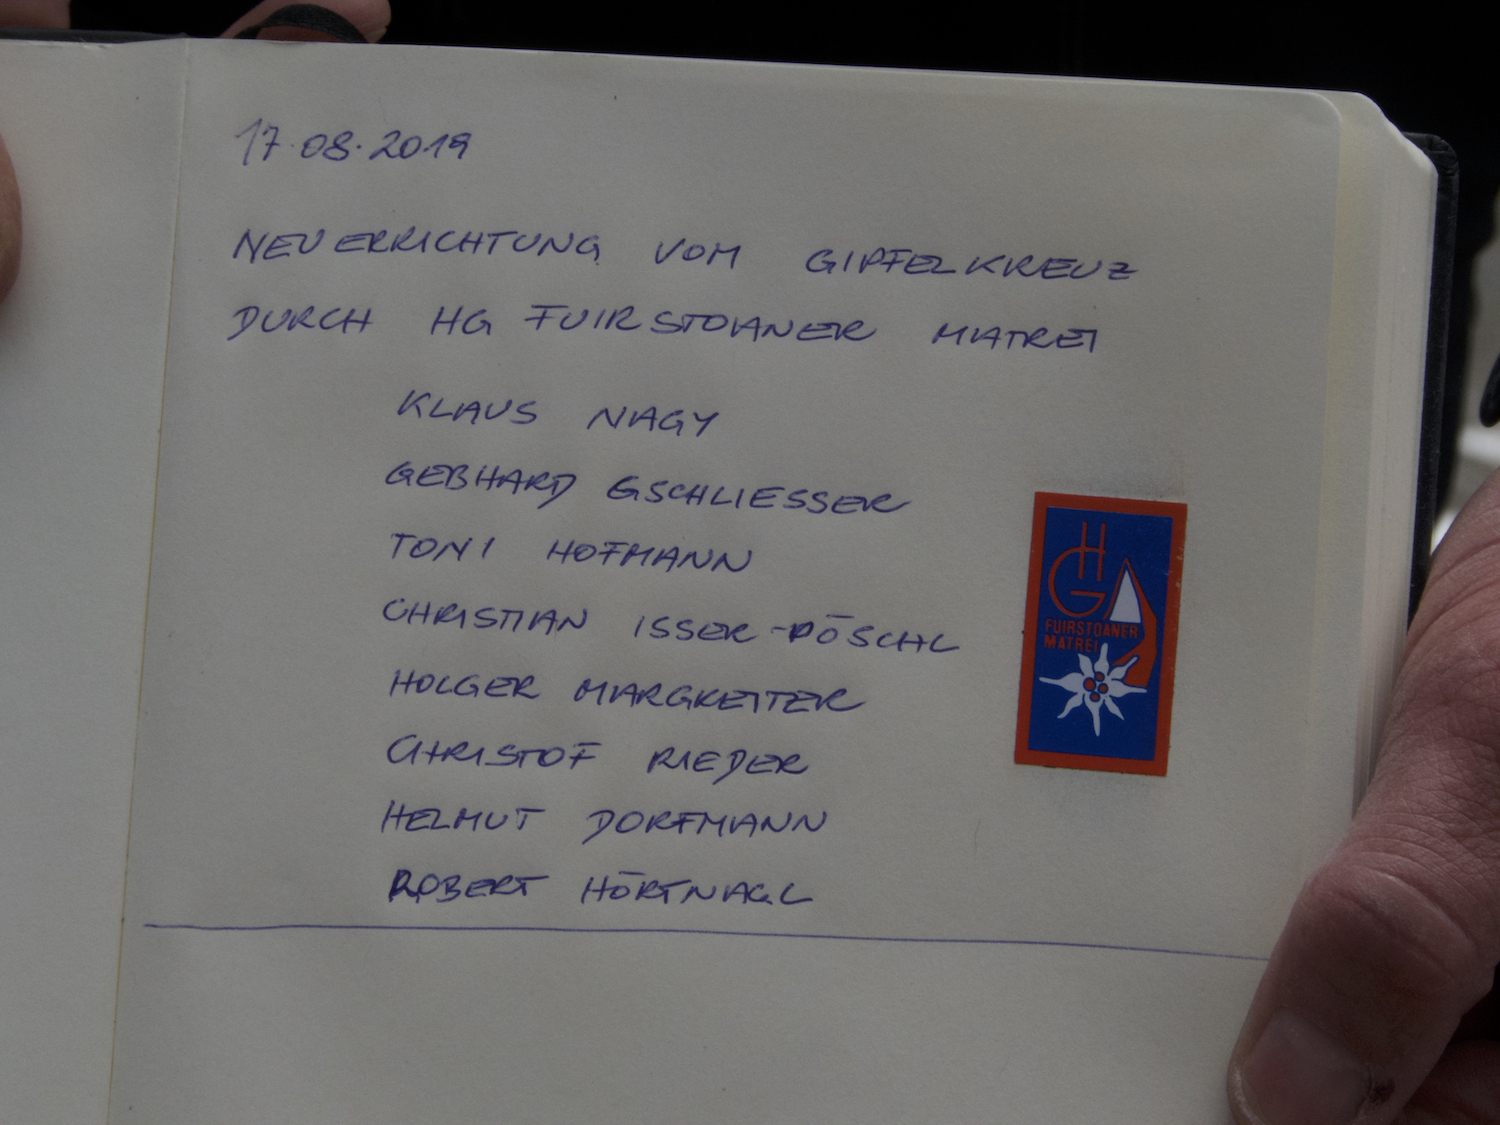 17.08.2019
NEUERRICHTUNG VOM GIPFELKREUZ
DURCH HG FUIRSTOANER MATREI
KLAUS NAGY
GEBHARD GSCHLIESSER
TONI HOFMANN
CHRISTIAN ISSER-PÖSCHL
HOLGER MARGREITER
CHRISTOF RIEDER
HELMUT DORFMANN
ROBERT HÖRTNAGL
HG
FUIRSTOANER
MATREI